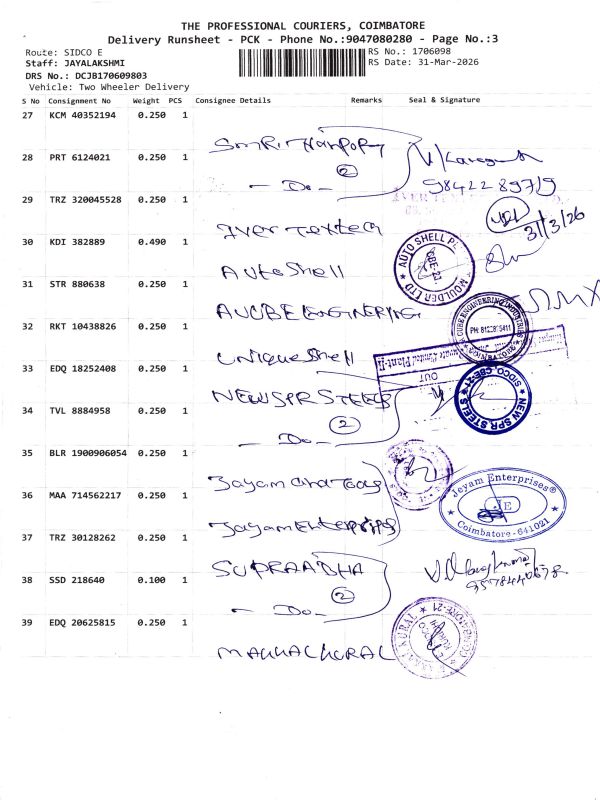 THE PROFESSIONAL COURIERS, COIMBATORE
Delivery Runsheet - PCK - Phone No.:9047080280 - Page No.:3
Route: SIDCO E
RS No.: 1706098
Staff: JAYALAKSHMI
RS Date: 31-Mar-2026
DRS No.: DCJB170609803
Vehicle: Two Wheeler Delivery
S No Consignment No Weight PCS Consignee Details Remarks Seal & Signature
27 KCM 40352194 0.250 1
28 PRT 6124021 0.250 1
2
- Do -
9842289719
29 TRZ 320045528 0.250 1
31/3/26
30 KDI 382889 0.490 1
AUTO SHELL MOULDER LTD
CBE-21
Autoshell
31 STR 880638 0.250 1
32 RKT 10438826 0.250 1
CUBE ENGINEERING INDUSTRIES
COIMBATORE
Unique shell
33 EDQ 18252408 0.250 1
OUT
NEW SPR STEELS
NEW SPR STEELS SIDCO, CBE-21
34 TVL 8884958 0.250 1
2
- Do -
35 BLR 1900906054 0.250 1
Jeyam Enterprises®
JE
Coimbatore-641021
36 MAA 714562217 0.250 1
Jayam Enterprises
37 TRZ 30128262 0.250 1
SUPRAABHA
2
38 SSD 218640 0.100 1
- Do -
39 EDQ 20625815 0.250 1